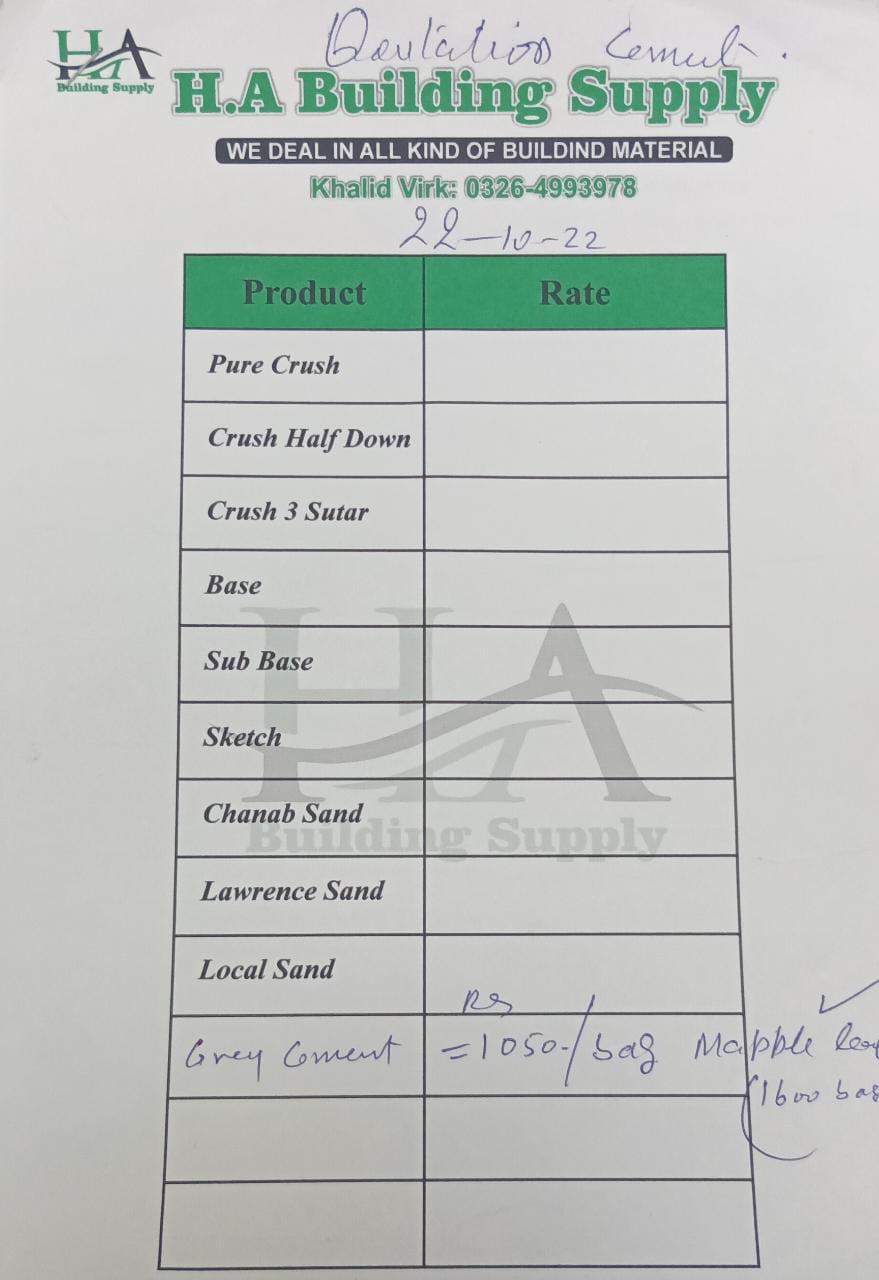 Qoutation Cement.
HA
Building Supply
H.A Building Supply
WE DEAL IN ALL KIND OF BUILDIND MATERIAL
Khalid Virk: 0326-4993978
22-10-22
Product Rate
Pure Crush
Crush Half Down
Crush 3 Sutar
Base
Sub Base
Sketch
Chanab Sand
Lawrence Sand
Local Sand
Rs
Grey Cement =1050-/bag Mapple leaf
(1600 bag
HA
Building Supply